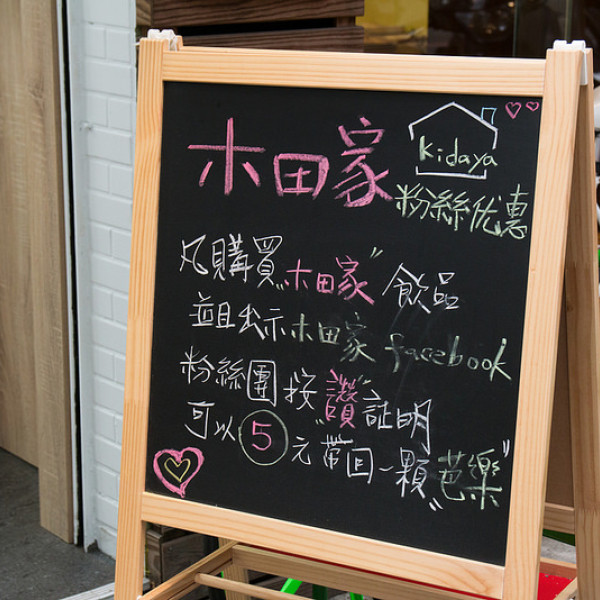 木田家
Kidaya
粉絲优惠
凡購買"木田家"飲品
並且出示木田家facebook
粉絲團按"讚"證明
可以5元帶回一顆"芭樂"